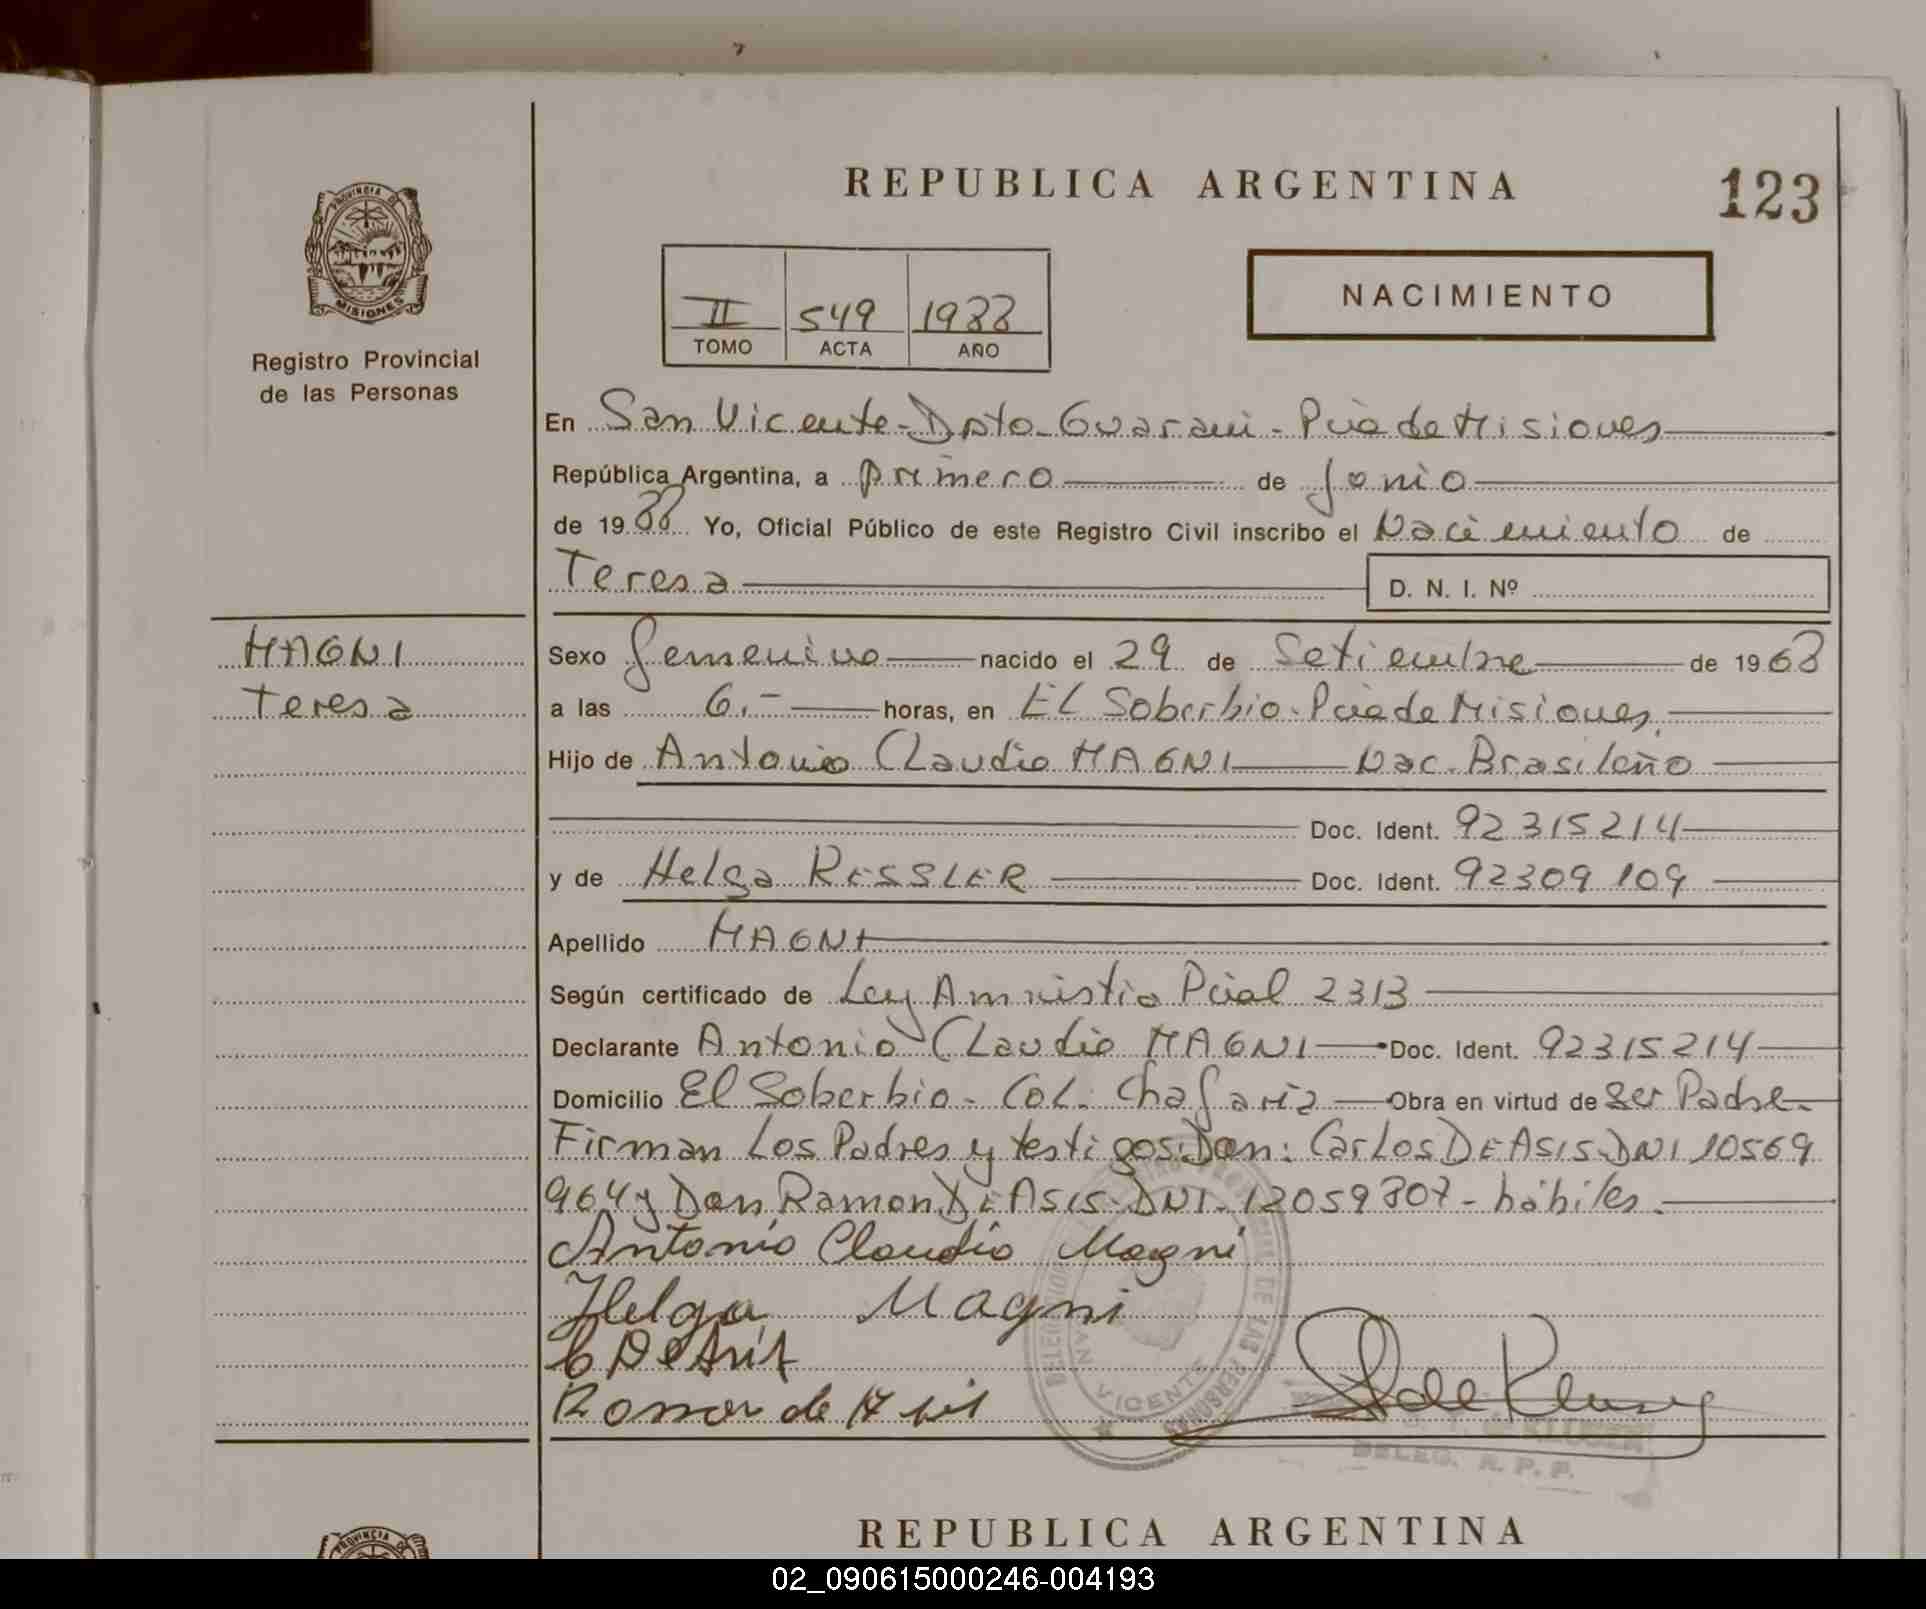 REPUBLICA ARGENTINA
123
PROVINCIA DE
MISIONES
Registro Provincial
de las Personas
II 549 1988
TOMO ACTA AÑO
NACIMIENTO
En San Vicente - Dpto. Guarani - Pcia de Misiones
República Argentina, a primero de Junio
de 1988 Yo, Oficial Público de este Registro Civil inscribo el Nacimiento de
Teresa D. N. I. Nº
MAGNI
Teresa
Sexo femenino nacido el 29 de Setiembre de 1968
a las 6.- horas, en EL Soberbio - Pcia de Misiones.
Hijo de Antonio CLaudio MAGNI Nac. Brasileño
Doc. Ident. 92 315214
y de Helga RESSLER Doc. Ident. 92309 109
Apellido MAGNI
Según certificado de Ley Amnistia Pcial 2313
Declarante Antonio CLaudio MAGNI Doc. Ident. 92315214
Domicilio El Soberbio - COL. Chafariz Obra en virtud de Ser Padre.
Firman Los Padres y testigos: Don: CarLos DE ASIS - DNI 10569
964 y Don Ramon DE ASIS - DNI - 12059807 - hábiles.
Antonio Claudio Magni
Helga Magni
C De Asis
Ramon de
DE LAS PERSONAS
VICENTE
KLUSER
DELEG. R. P. P.
REPUBLICA ARGENTINA
PROVINCIA DE
02_090615000246-004193